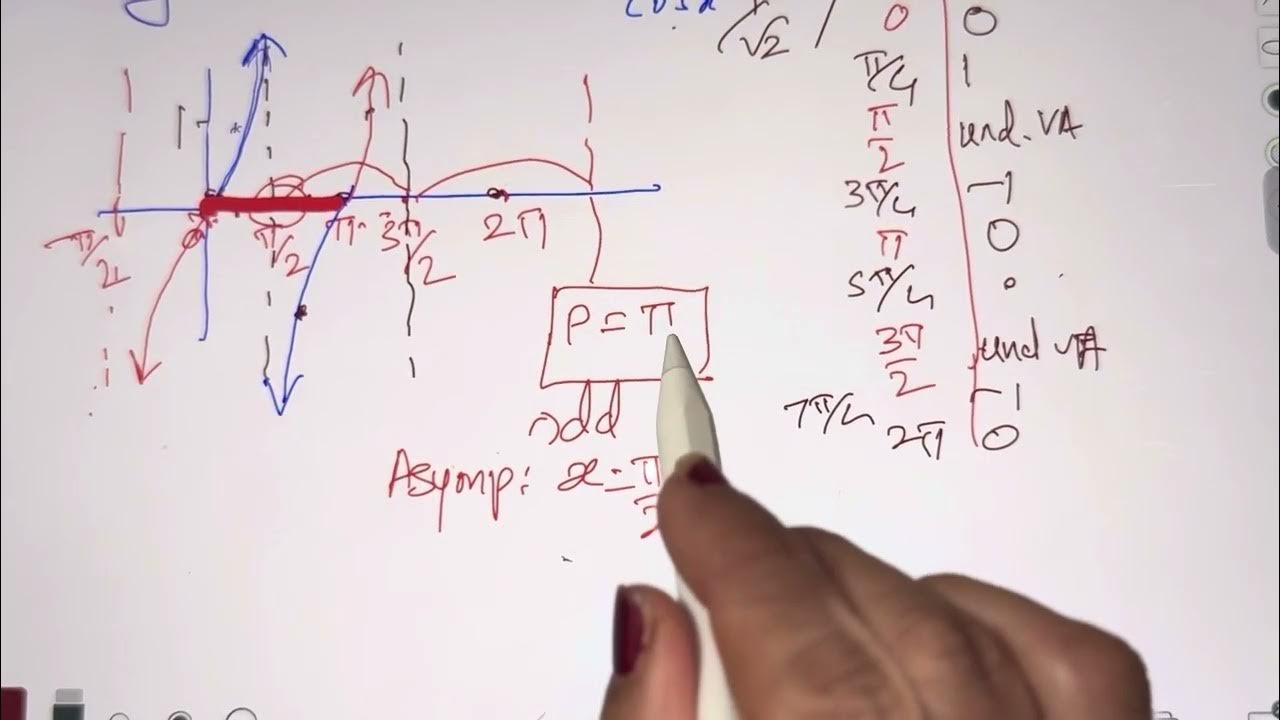 cos x
1/√2 /
0 | 0
π/4 | 1
π/2 | und. VA
3π/4 | -1
π | 0
5π/4
3π/2 | und VA
7π/4 | -1
2π | 0
1
-π/2 π/2 π 3π/2 2π
P = π
odd
Asymp: x = π